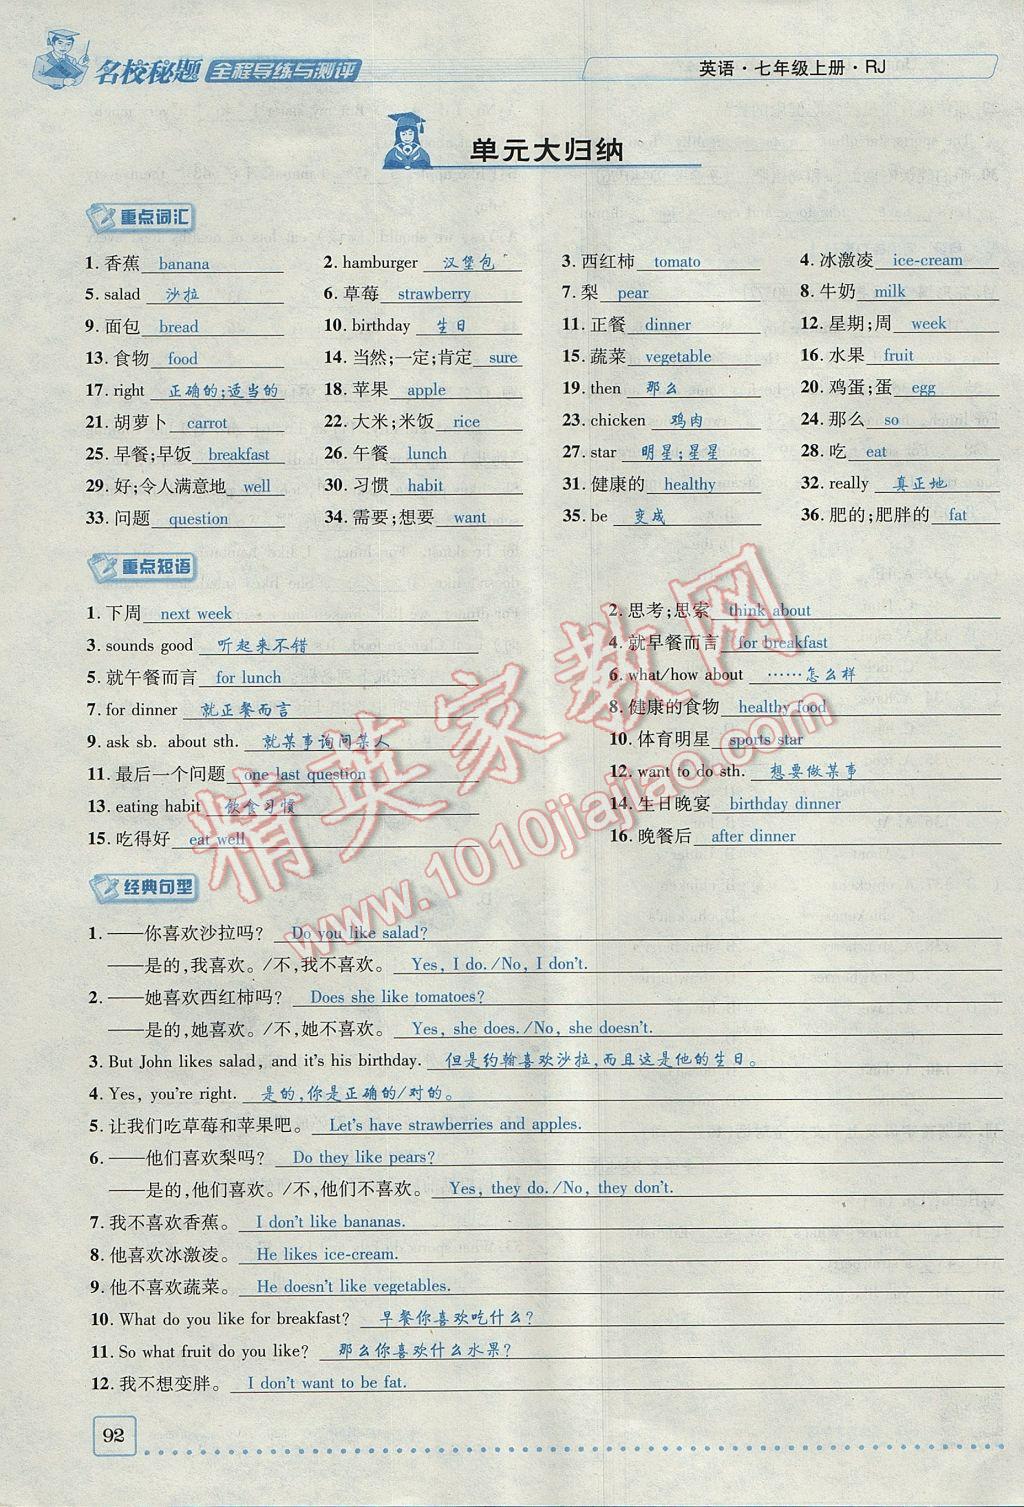 名校秘题 全程导练与测评
英语·七年级上册·RJ
单元大归纳
重点词汇
1. 香蕉 banana 2. hamburger 汉堡包 3. 西红柿 tomato 4. 冰激凌 ice-cream
5. salad 沙拉 6. 草莓 strawberry 7. 梨 pear 8. 牛奶 milk
9. 面包 bread 10. birthday 生日 11. 正餐 dinner 12. 星期;周 week
13. 食物 food 14. 当然;一定;肯定 sure 15. 蔬菜 vegetable 16. 水果 fruit
17. right 正确的;适当的 18. 苹果 apple 19. then 那么 20. 鸡蛋;蛋 egg
21. 胡萝卜 carrot 22. 大米;米饭 rice 23. chicken 鸡肉 24. 那么 so
25. 早餐;早饭 breakfast 26. 午餐 lunch 27. star 明星;星星 28. 吃 eat
29. 好;令人满意地 well 30. 习惯 habit 31. 健康的 healthy 32. really 真正地
33. 问题 question 34. 需要;想要 want 35. be 变成 36. 肥的;肥胖的 fat
重点短语
1. 下周 next week 2. 思考;思索 think about
3. sounds good 听起来不错 4. 就早餐而言 for breakfast
5. 就午餐而言 for lunch 6. what/how about ……怎么样
7. for dinner 就正餐而言 8. 健康的食物 healthy food
9. ask sb. about sth. 就某事询问某人 10. 体育明星 sports star
11. 最后一个问题 one last question 12. want to do sth. 想要做某事
13. eating habit 饮食习惯 14. 生日晚宴 birthday dinner
15. 吃得好 eat well 16. 晚餐后 after dinner
经典句型
1. ——你喜欢沙拉吗? Do you like salad?
——是的,我喜欢。/不,我不喜欢。 Yes, I do./No, I don't.
2. ——她喜欢西红柿吗? Does she like tomatoes?
——是的,她喜欢。/不,她不喜欢。 Yes, she does./No, she doesn't.
3. But John likes salad, and it's his birthday. 但是约翰喜欢沙拉,而且这是他的生日。
4. Yes, you're right. 是的,你是正确的/对的。
5. 让我们吃草莓和苹果吧。 Let's have strawberries and apples.
6. ——他们喜欢梨吗? Do they like pears?
——是的,他们喜欢。/不,他们不喜欢。 Yes, they do./No, they don't.
7. 我不喜欢香蕉。 I don't like bananas.
8. 他喜欢冰激凌。 He likes ice-cream.
9. 他不喜欢蔬菜。 He doesn't like vegetables.
10. What do you like for breakfast? 早餐你喜欢吃什么?
11. So what fruit do you like? 那么你喜欢什么水果?
12. 我不想变胖。 I don't want to be fat.
92
精英家教网
www.1010jiajiao.com